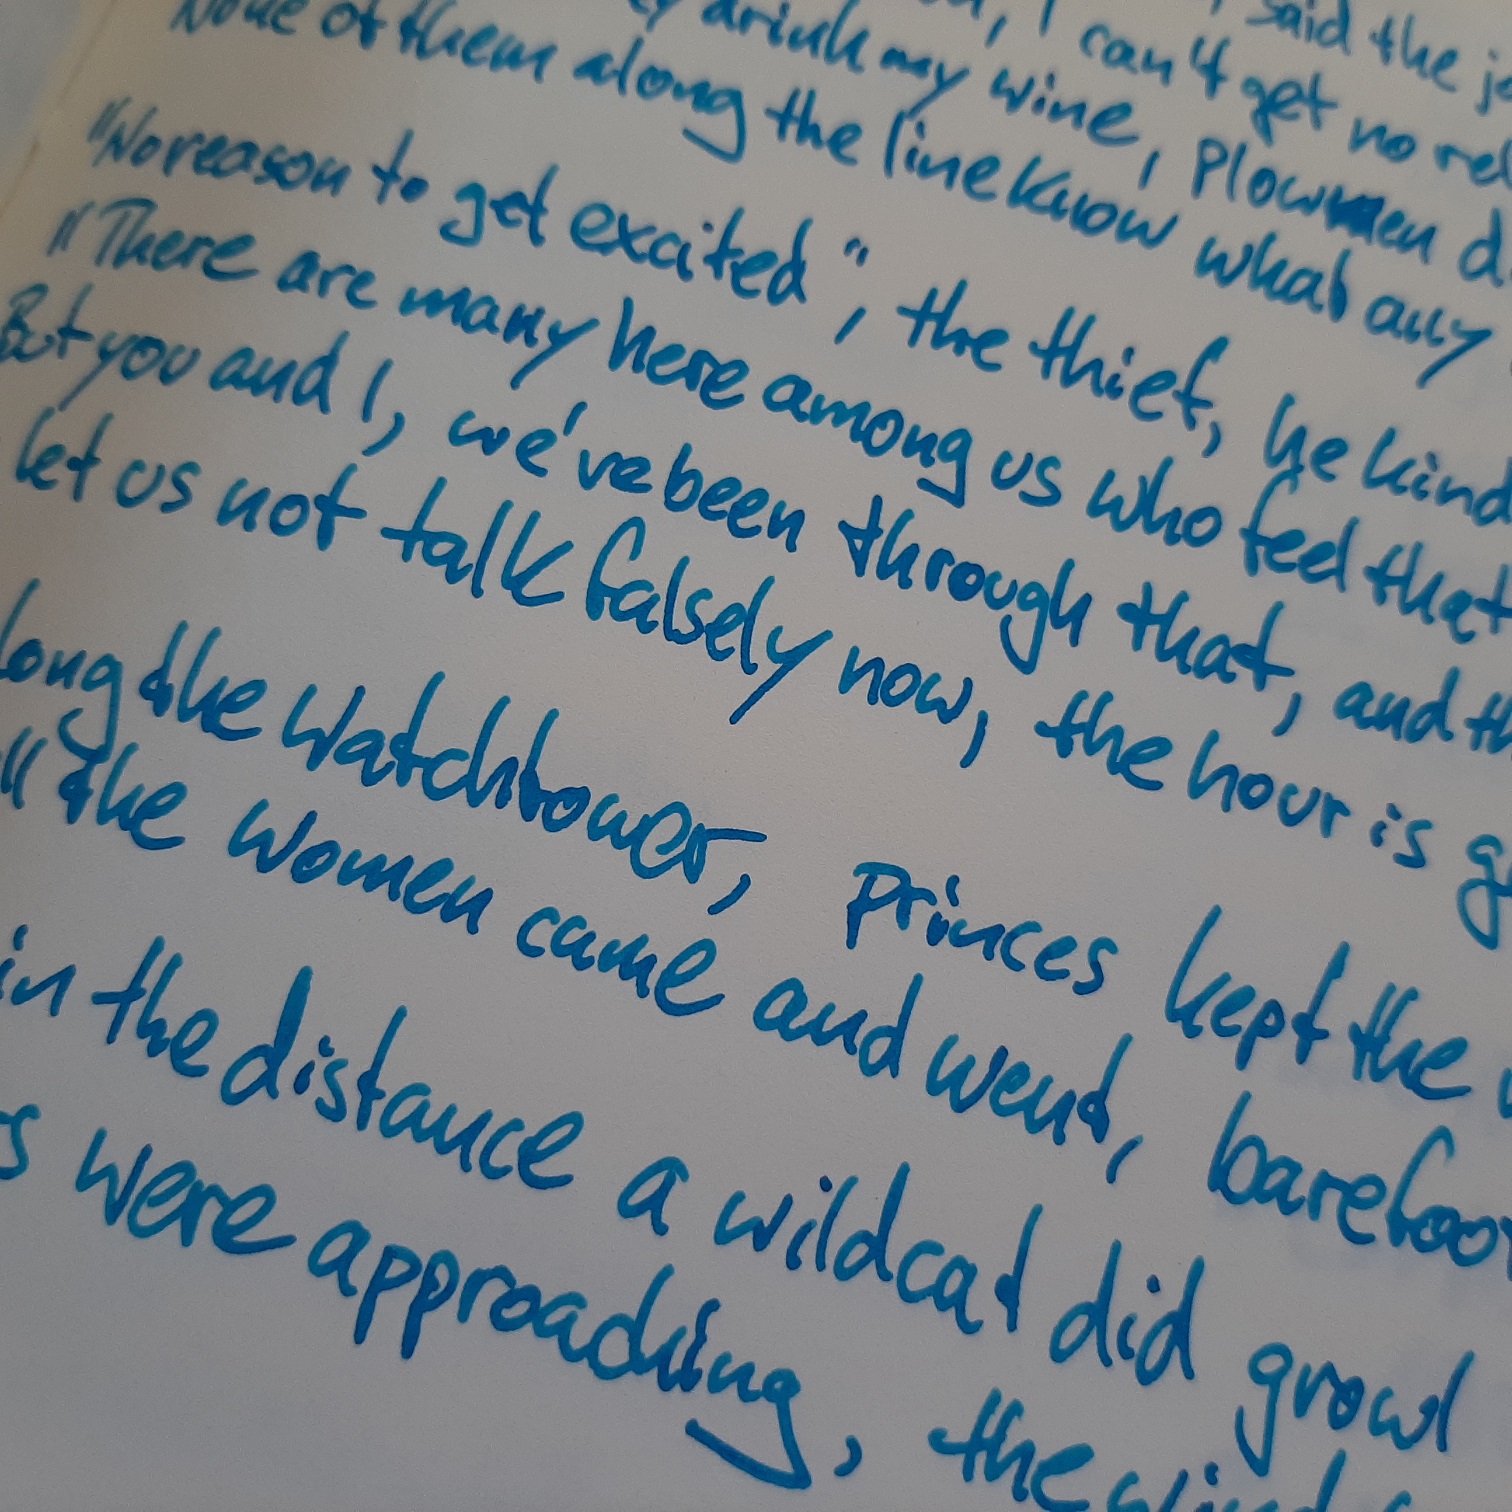 said the
, I can't get no
drink my wine, Plowmen d
None of them along the line know what any
"No reason to get excited", the thief, he kind
"There are many here among us who feel that
But you and I, we've been through that, and th
let us not talk falsely now, the hour is g
long the Watchtower, Princes kept the
ll the women came and went, barefoo
in the distance a wildcat did growl
s were approaching, the wind